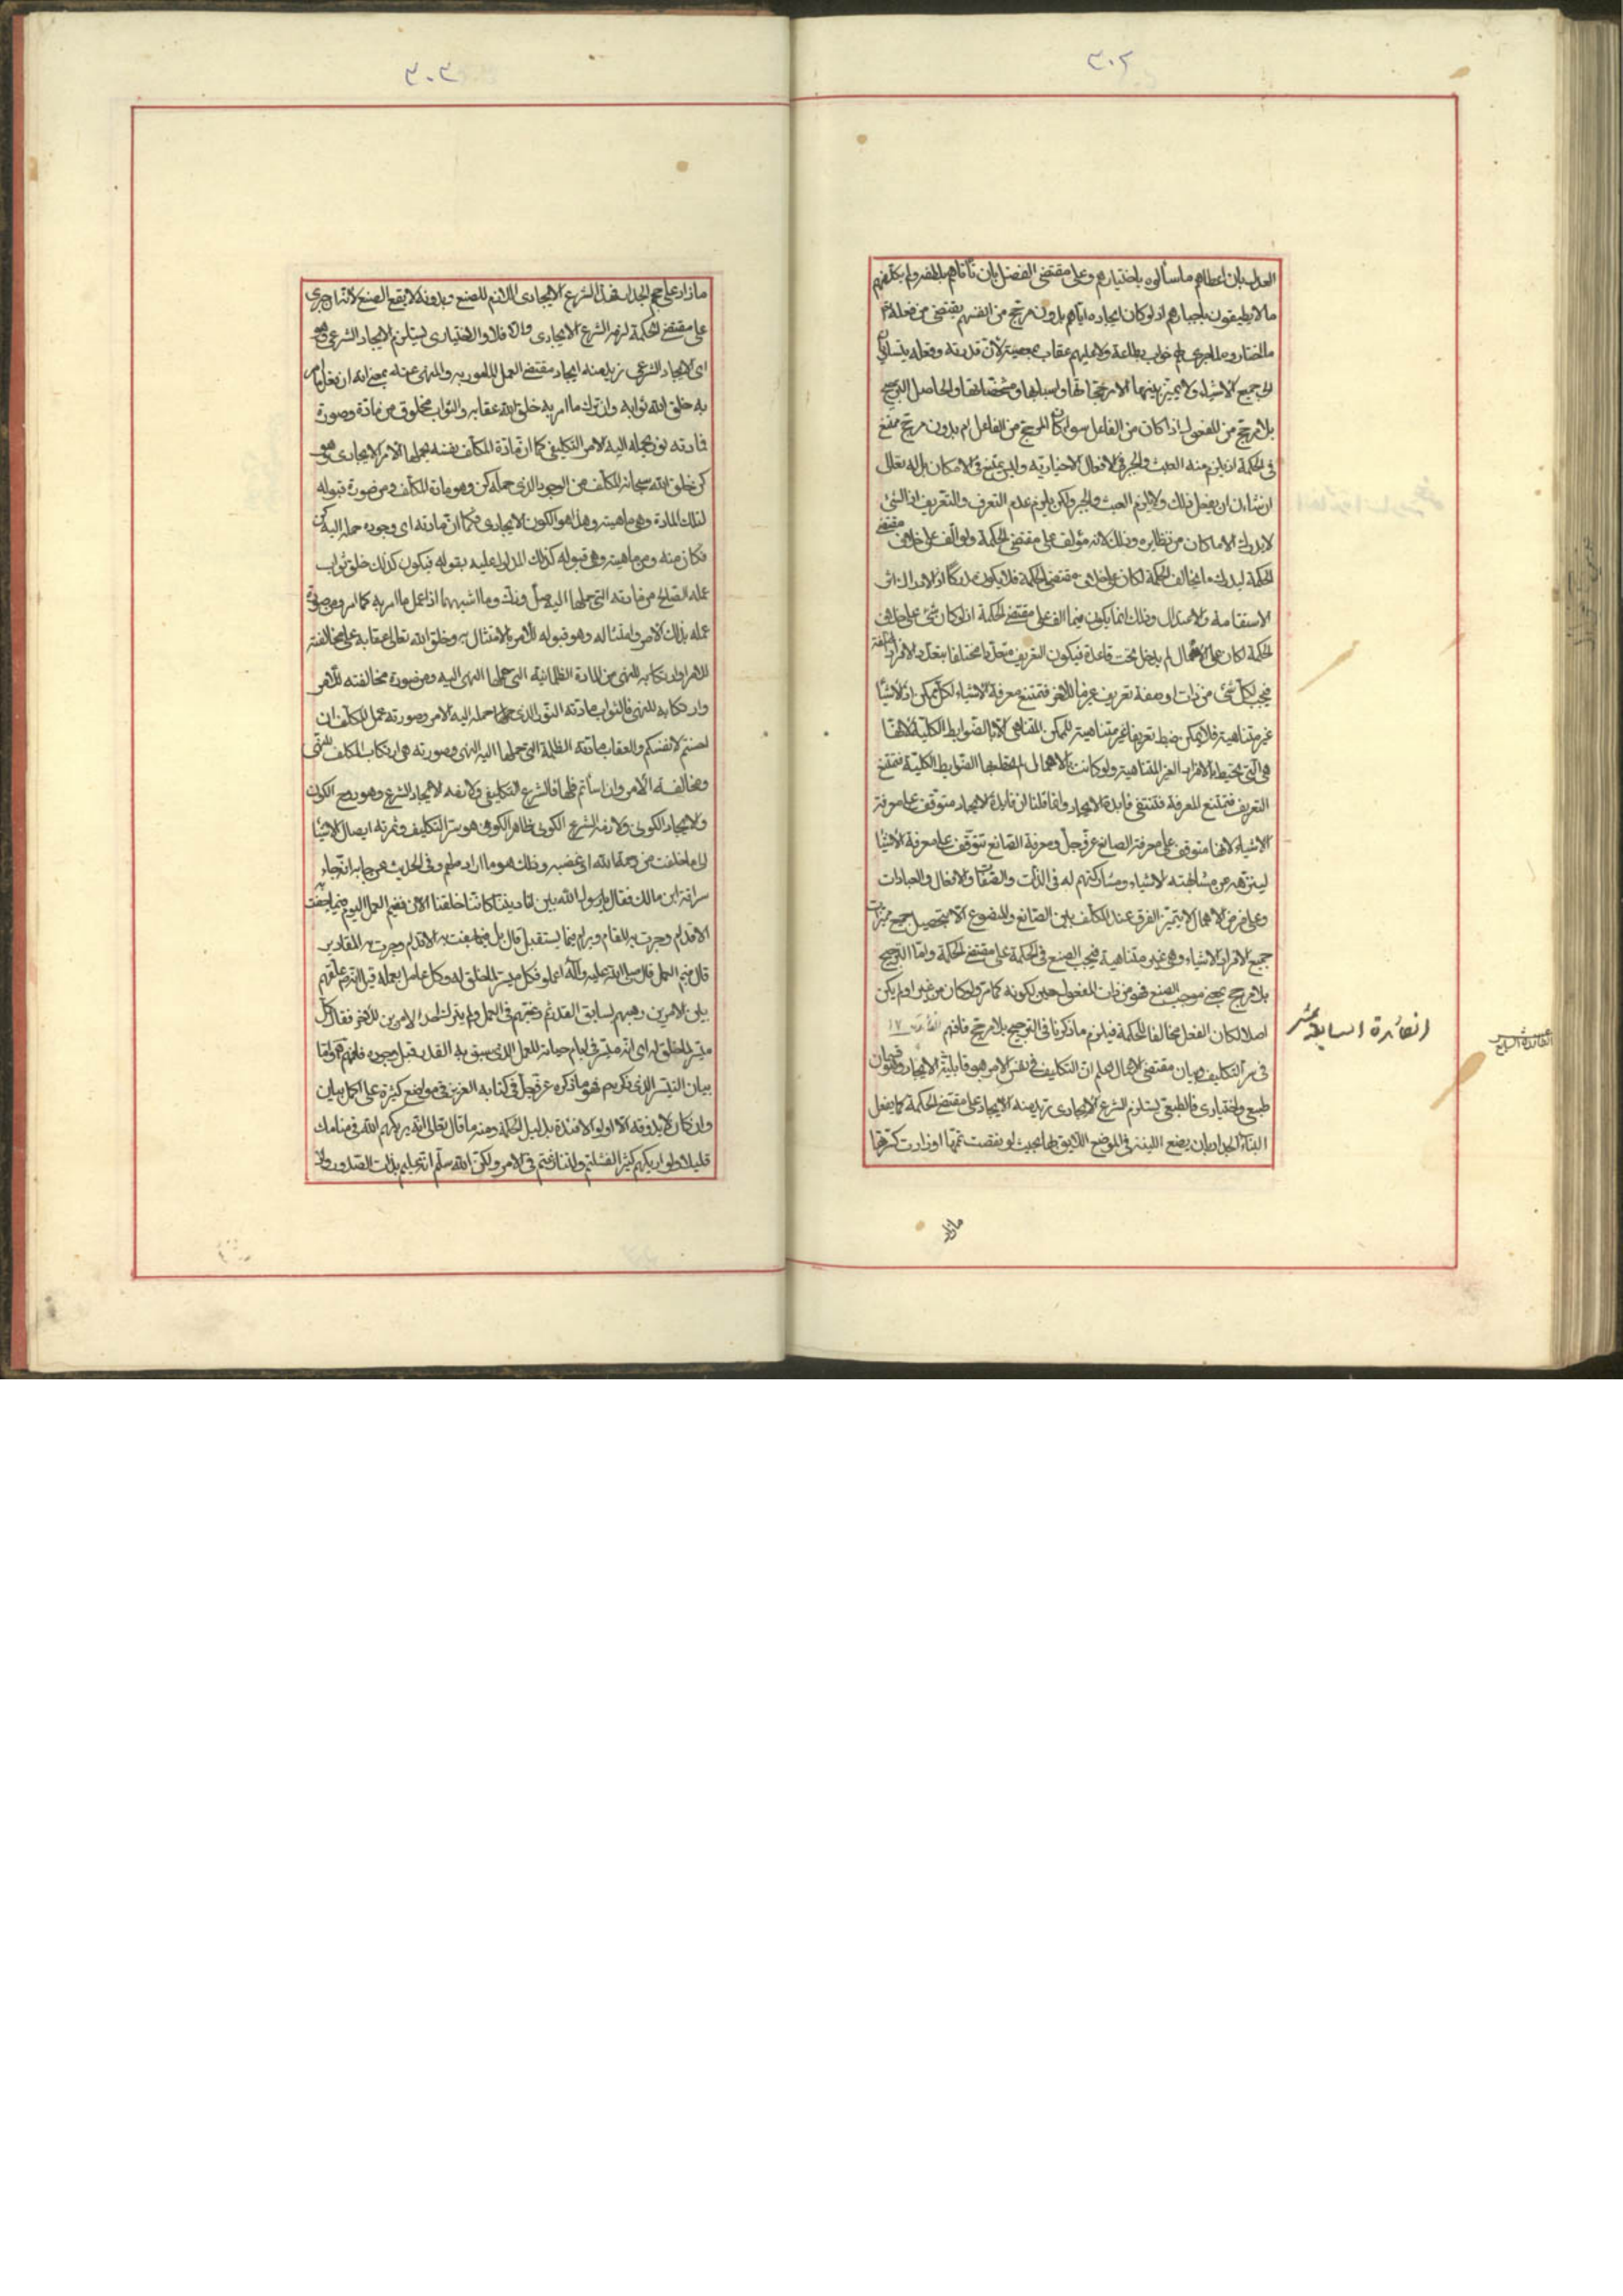 ٣٠٢
العدل بان اعطاهم ما سألوه باختيارهم وعلى مقتضى الفضل بان تأتاهم بلطفه ولم يكلفهم
ما لا يطيقون باجبارهم اذ لو كان ايجاده اياهم بدون مرجح من انفسهم يقتضي من فعله
ما اختاروه لما جرى لهم ثواب بطاعة ولا عليهم عقاب بمعصية لان قدرته وفعله يتساويان
الى جميع الاشياء ولا يميز بينهما الا مرجحاتها واسبابها ومشخصاتها والحاصل الترجيح
بلا مرجح من المفعول اذا كان من الفاعل سواء كان المرجح من الفاعل ام بدون مرجح ممتنع
في الحكمة اذ يلزم منه العبث والجبر في الافعال الاختيارية وليس بممتنع في الامكان بل له تعالى
ان شاء ان يفعل ذلك ولا يلزم العبث والجبر ولكن يلزم عدم التعرف والتعريف اذ الشئ
لا يدرك الا ما كان من نظايره وذلك لانه مؤلف على مقتضى الحكمة ولو الف على خلاف مقتضى
الحكمة ليدرك ما يخالف الحكمة لكان على خلاف مقتضى الحكمة فلا يكون مدركا اذ الادراك اثر
الاستقامة والاعتدال وذلك انما يكون فيما الف على مقتضى الحكمة اذ لو كان شئ على خلاف
الحكمة لكان على الاهمال لم يدخل تحت قاعدة فيكون التعريف متعددا مختلفا بتعدد الافراد
فيجب لكل شئ من ذات او صفة تعريف غير ما للاخر فتمتنع معرفة الاشياء لكل ممكن اذ الاشياء
غير متناهية فلا يمكن ضبط تعريفها غير متناهية للممكن المتناهي الا بالضوابط الكلية لانها
هي التي تحيط بالافراد الغير المتناهية ولو كانت بالاهمال لم تحط بها الضوابط الكلية فتمتنع
التعريف فتمتنع المعرفة فتنتفي فايدة الايجاد وانما قلنا ان فايدة الايجاد متوقف على معرفة
الاشياء لانها متوقف على معرفة الصانع عز وجل ومعرفة الصانع تتوقف على معرفة الاشياء
لينزهه عن مشابهته الاشياء ومشاركتهم له في الذات والصفات والافعال والعبادات
وعلى فرض الاهمال لا يتميز الفرق عند المكلف بين الصانع والمصنوع الا بتحصيل جميع مميزات
جميع الافراد الاشياء وهي غير متناهية فيجب الصنع في الحكمة على مقتضى الحكمة واما الترجيح
بلا مرجح بمعنى موجب الصنع فهو من ذات المفعول حين لكونه كما مر ولو كان من غير او لم يكن
اصلا لكان الفعل مخالفا للحكمة فيلزم ما ذكرنا في الترجيح بلا مرجح فافهم الفائدة ١٧
في سر التكليف وبيان مقتضى الاعمال اعلم ان التكليف في نفس الامر هو قابلية الايجاد وهو قسمان
طبيعي واختياري فالطبيعي يستلزم الشرع الايجادي نريد منه الايجاد على مقتضى الحكمة كما يفعل
البناء الجدار بان يضع اللبنة في الموضع اللايق بها بحيث لو نقصت تممها او زادت كسرها
ما زاد
الفائدة السابعة عشر
الفائدة السابع عشر
٣٠٣
ما زاد على حجم الجدار فهذا الشرع الايجادي اللازم للصنع وبدونه لا يقع الصنع لانه ان جرى
على مقتضى الحكمة لزمه الشرع الايجادي والا فلا والاختياري يستلزم الايجاد الشرعي وهو
اي الايجاد الشرعي نريد منه ايجاد مقتضى العمل المامور به والمنهى عنه بمعنى انه ان فعل ما امر
به خلق الله ثوابه وان ترك ما امر به خلق الله عقابه والثواب مخلوق من مادة وصورة
فمادته نور يحمله اليه الامر التكليفي كما ان مادة المكلف نفسه يحملها الامر الايجادي وهو
كن خلق الله سبحانه المكلف من الوجود الذي حمله كن وهو مادة المكلف ومن صورة قبوله
لتلك المادة وهي ماهيته وهذا هو الكون الايجادي فكما ان مادته اي وجوده حمله اليه كن
فكان منه ومن ماهيته وهي قبوله كذلك المدلول عليه بقوله فيكون كذلك خلق ثواب
عمله الصالح من مادته التي حملها اليه صل وزك وما اشبههما اذا عمل ما امر به كما امر ومن صورة
عمله بذلك الامر وامتثاله وهو قبوله للامر بالامتثال به وخلق الله تعالى عقابه على مخالفته
للامر وارتكابه للنهي من المادة الظلمانية التي حملها النهي اليه ومن صورة مخالفته للامر
وارتكابه للنهي فالثواب مادته النور الذي حمله اليه الامر وصورته عمل المكلف ان
احسنتم لانفسكم والعقاب مادته الظلمة التي حملها اليه النهي وصورته هي ارتكاب المكلف للنهي
ومخالفته الامر وان اسأتم فلها فالشرع التكليفي ولازمه الايجاد الشرع وهو روح الكون
والايجاد الكوني ولازمه الشرع الكوني ظاهر الكون هو سر التكليف وثمرته ايصال الاشياء
الى ما خلقت من رحمة الله او غضبه وذلك هو ما اراد منهم وفي الحديث عن جابر انه جاء
سراقة ابن مالك فقال يا رسول الله بين لنا ديننا كاننا خلقنا الان ففيم العمل اليوم فيما جفت به
الاقلام وجرت به المقادير ام فيما يستقبل قال بل فيما جفت به الاقلام وجرت به المقادير
قال ففيم العمل قال صلى الله عليه وآله اعملوا فكل ميسر لما خلق له وكل عامل بعمله قيل انه ص علقهم
بين الامرين رهبهم لسابق القدر ثم رغبهم في العمل ولم يترك احد الامرين للاخر فقال كل
ميسر لما خلق له اي انه ميسر في ايام حياته للعمل الذي سبق به القدر قبل وجوده فافهم واما
بيان التيسير الذي ذكرهم فهو ما ذكره عز وجل في كتابه العزيز في مواضع كثيرة على اكمل بيان
وان كان لا يذوقه الا اولو الافئدة بدليل الحكمة ومنه ما قال تعالى اذ يريكهم الله في منامك
قليلا ولو اريكهم كثيرا لفشلتم ولتنازعتم في الامر ولكن الله سلم انه عليم بذات الصدور واذ